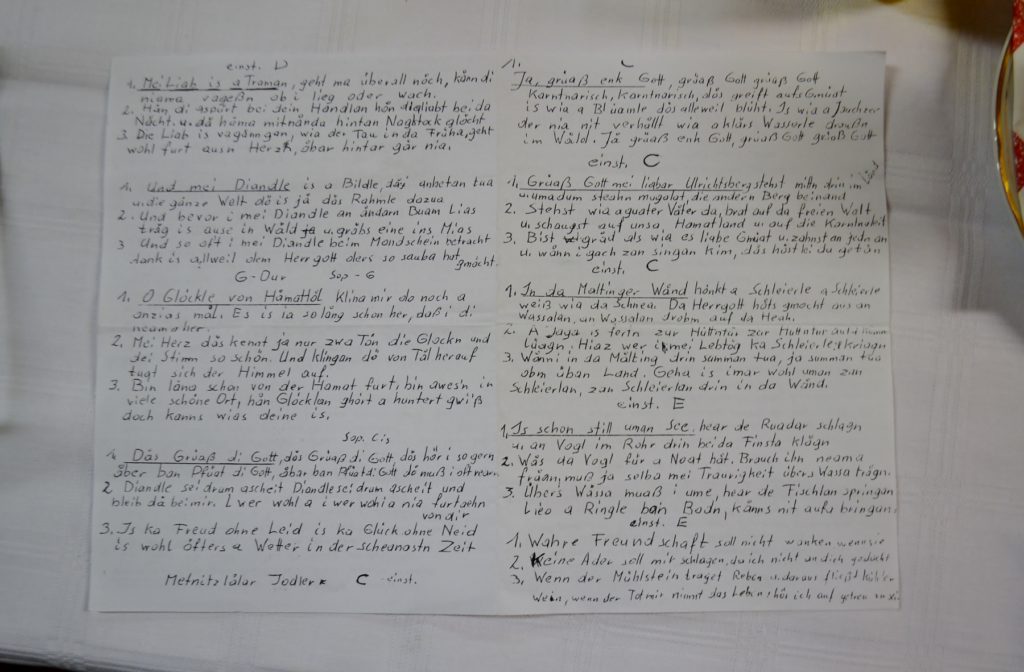 einst. D
1. Mei Liab is a Traman, geht ma überall nåch, kånn di
niama vageßn ob i lieg oder wach.
2. Hån di gspürt bei dein Handlan hån di gliabt bei da
Nåcht. u. då håma mitnånda hintan Nagstock glåcht
3. Die Liab is vagånngan, wia der Tau in da Fruha, geht
wohl furt ausn Herz, åbar hintar går nia.
1. Und mei Diandle is a Bildle, dås anbetan tua
u. die gånze Welt dö is jå dås Rahmle dazua
2. Und bevor i mei Diandle an åndarn Buam Lias
tråg is ause in Wåld u. gråbs eine ins Mias
3 Und so oft i mei Diandle beim Mondschein betracht
dank is allweil dem Herrgott ders so sauba hat gmåcht.
G-Dur Sop-G
1. O Glöckle von Håmattöl Kling mir do noch a
anzigs mål. Es is ja so lång schon her, daß i di
neama her.
2. Mei Herz dås kennt ja nur zwa Tön die Glockn und
dei Stimm so schön. Und klingan dö von Tål herauf
tuat sich der Himmel auf.
3. Bin lång schon von der Hamat furt, bin awes'n in
viele schöne Ort, hån Glöcklan ghört a huntert gwiß
doch kanns wias deine is.
Sop. Cis
1. Das Grüaß di Gott, dås Grüaß di Gott, dås hör i so gern
åber ban Pfüat di Gott, åbar ban Pfüat di Gott do muß i oft rearn
2 Diandle sei drum gscheit Diandle sei drum gscheit und
bleib då bei mir. I wer wohl a i wer wohl a nia furtgehn
von dir
3. Is ka Freud ohne Leid is ka Glück ohne Neid
is wohl öfters a Wetter in der scheanostn Zeit
Metnitztålar Jodler C einst.
1.
Ja, grüaß enk Gott, grüaß Gott grüaß Gott
Karntnarisch, Karntnarisch, dås greift aufs Gmüat
is wia a Blüamle dås alleweil blüht. Is wia a Jauchzer
der nia nit verhållt wia a klårs Wasserle draußn
im Wåld. Jå grüaß enk Gott, grüaß Gott grüaß Gott
einst. C
1. Grüaß Gott mei liabar Ulrichtsberg stehst mittn drin im Lånd
u. umadum steahn mugalat, die andern Berg beinand
2. Stehst wia a guater Våter da, brat auf da freien Welt
u. schaugst auf unsa Hamatland u. auf die
3. Bist gråd als wia es liabe Gmüat u. zahnst an jedn an
u. wånn i gach zan singan kim, das håst lei du getån
einst. C
1. In da Maltinger Wånd hånkt a Schleierle a Schleierle
weiß wia da Schnea. Da Herrgott håts gmocht aus an
Wassalan, an Wassalan drobm auf da Heah.
2. A Jaga is fertn zur Hüttn zur
Hiaz wer i mei Lebtåg ka Schleierle kriagn
3. Wånn i in da Målting drin summan tua, ja summan tua
obm üban Land. Geha is imar wohl uman zan
Schleierlan, zan Schleierlan drin in da Wånd.
einst. E
1. Is schon still uman See, hear de Ruadar schlagn
u. an Vogl im Rohr drin bei da Finsta klågn
2. Wås da Vogl für a Noat håt. Brauch ihn neama
frågn, muß ja selba mei Traurigkeit übers Wassa trågn.
3. Übers Wåssa muaß i ume, hear de Fischlan springan
Lieg a Ringle ban Bodn, kånns nit aufa bringan.
einst. E
1. Wahre Freundschaft soll nicht wanken wenn sie
2. Keine Ader soll mir schlagen, da ich nicht an dich gedacht
3. Wenn der Mühlstein traget Reben u. daraus fließt kühler
Wein, wenn der Tod mir nimmt das Leben, hör ich auf getreu zu